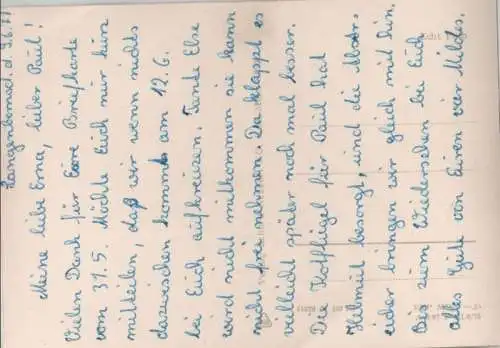 Langenbernsd. d. 5.6.77
Meine liebe Erna, lieber Paul!
Vielen Dank für Eure Briefkarte
vom 31.5. Möchte Euch nur kurz
mitteilen, daß wir wenn nichts
dazwischen kommt am 12.6.
bei Euch aufkreuzen. Tante Else
wird nicht mitkommen sie kann
nicht frei nehmen. Da klappt es
vielleicht später noch mal besser.
Die Kotflügel für Paul hat
Helmut besorgt, und die
bringen wir gleich mit hin.
Bis zum Wiedersehen bei Euch
alles Gute von Euren vier